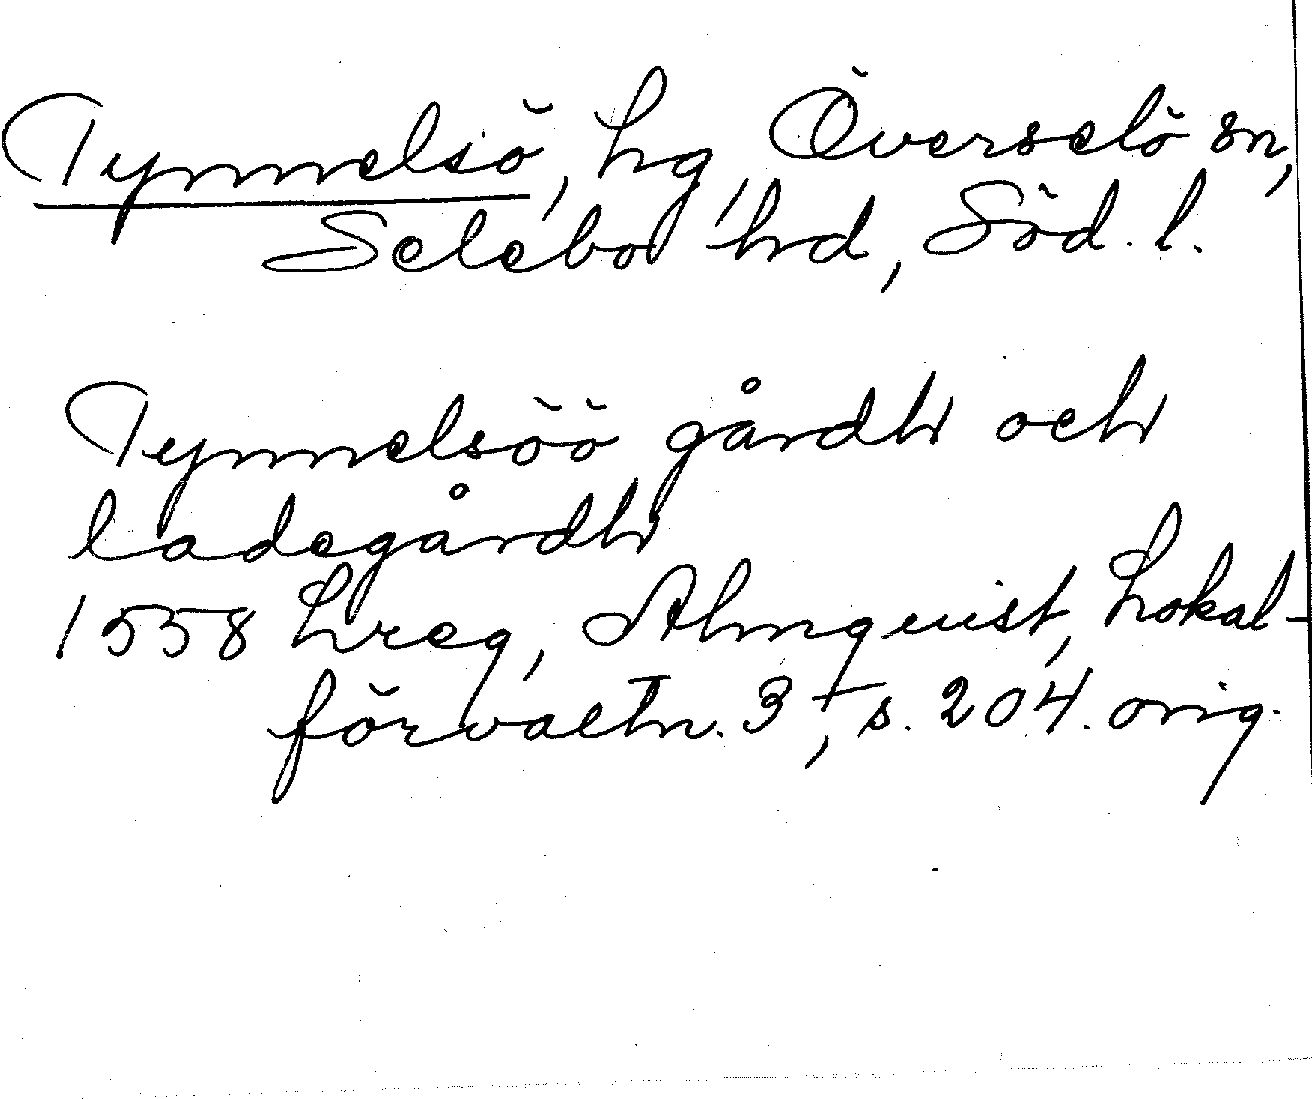 Tynnelsö, hg, Överselö sn,
Selebo hd, Söd. l.
Tynnelsöö gårdh och
ladegårdh
1558 Lreg, Almquist, Lokal-
förvaltn. 3, s. 204. orig.